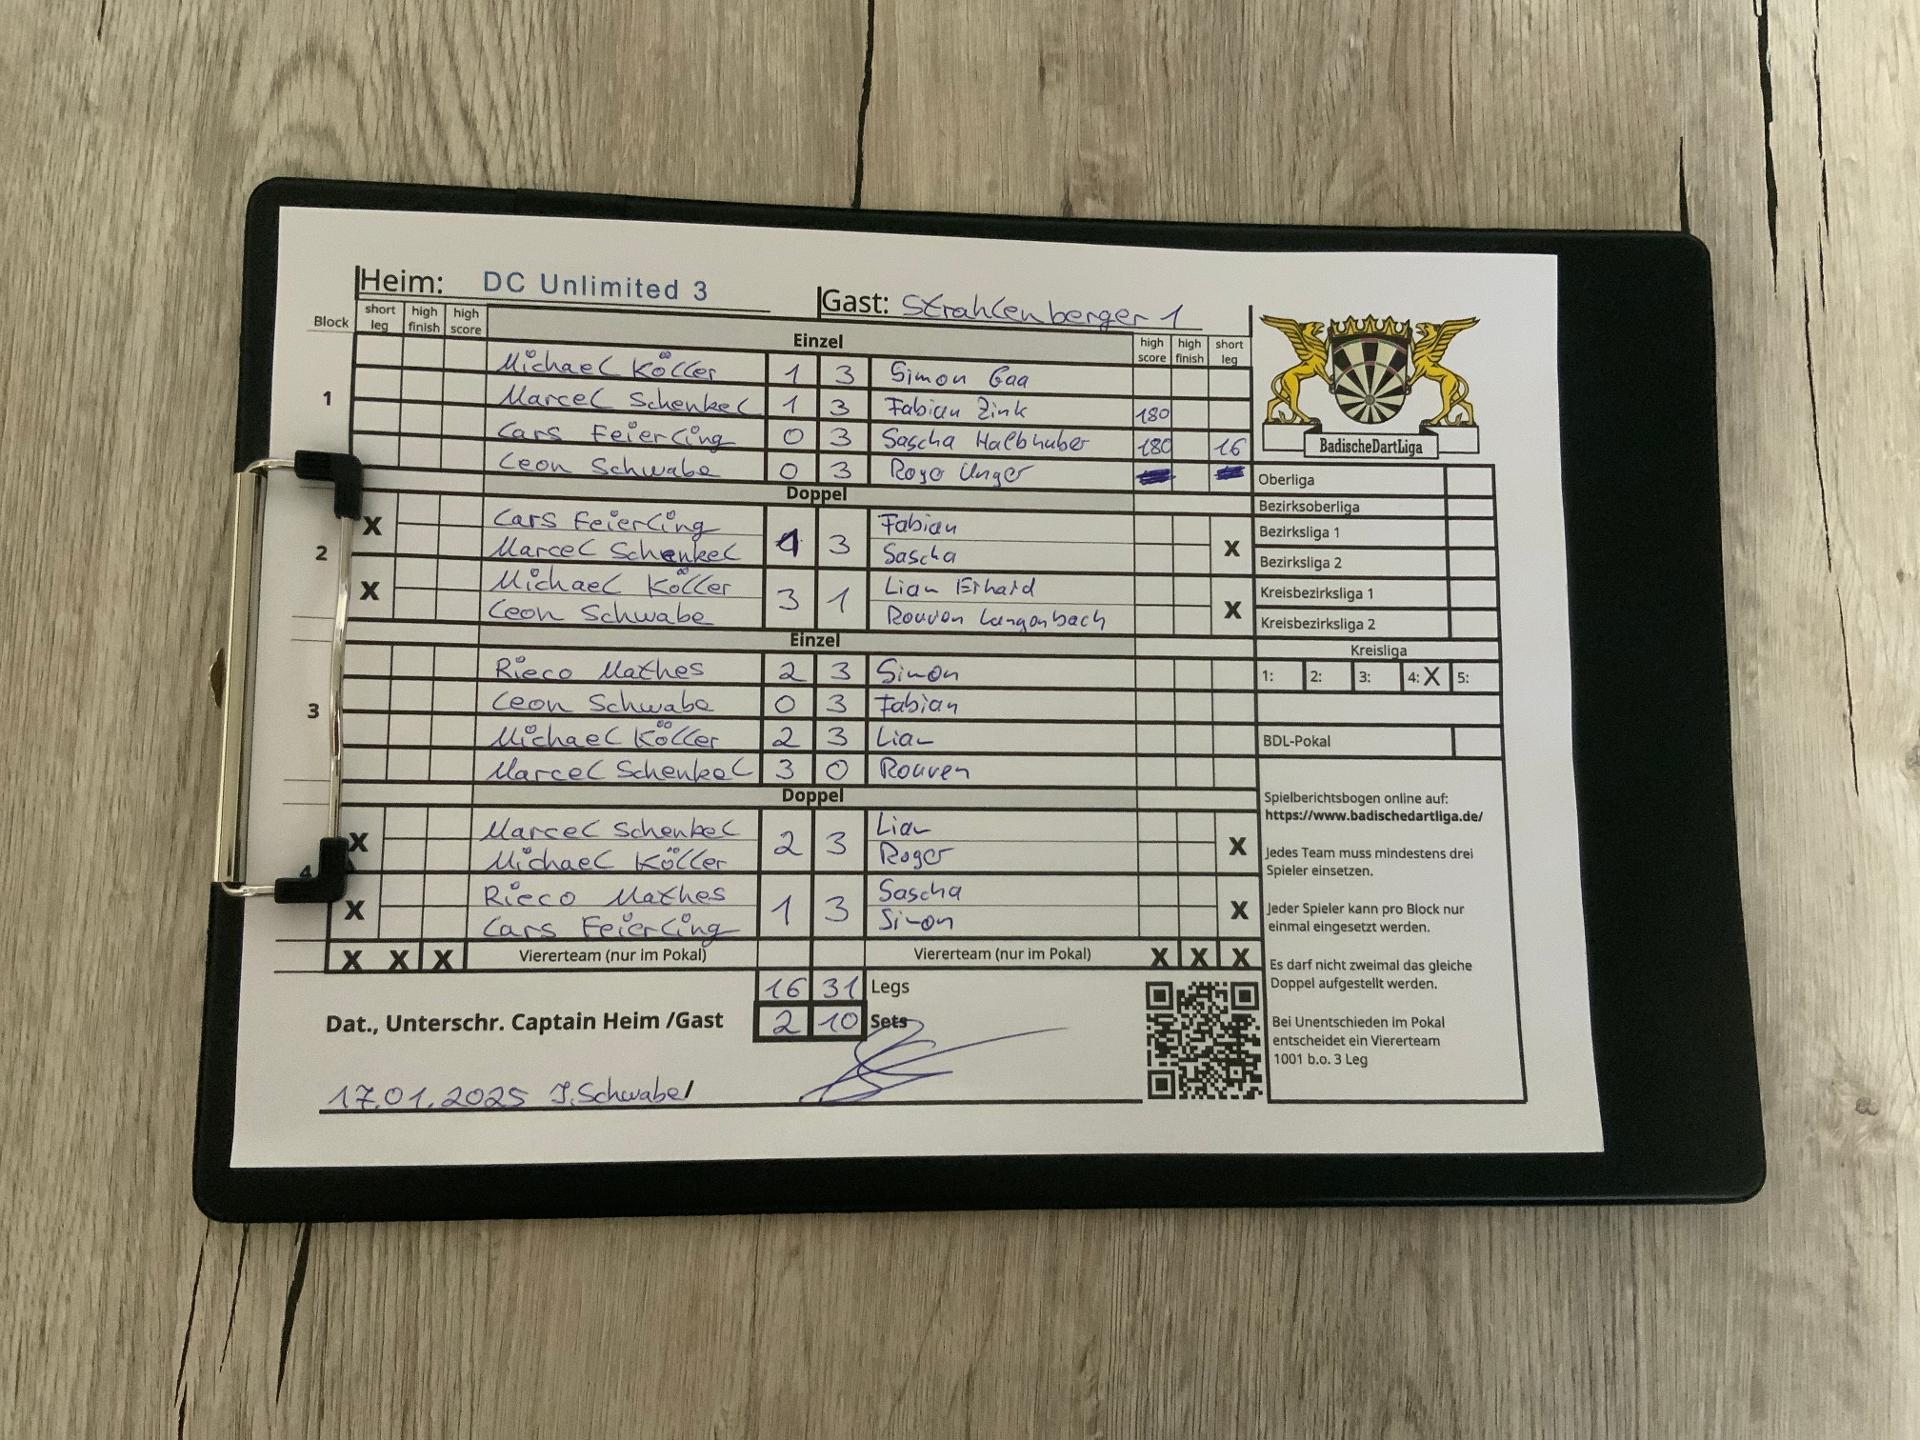 Heim: DC Unlimited 3 Gast: Strahlenberger 1
Block short leg high finish high score Einzel high score high finish short leg
1
Michael Köller 1 3 Simon Gaa
Marcel Schenkel 1 3 Fabian Zink 180
Lars Feierling 0 3 Sascha Halbhuber 180 16
Leon Schwabe 0 3 Roger Unger
Doppel
2
X Lars Feierling Marcel Schenkel 1 3 Fabian Sascha X
X Michael Köller Leon Schwabe 3 1 Lian Erhard Rouven Langenbach X
Einzel
3
Rieco Mathes 2 3 Simon
Leon Schwabe 0 3 Fabian
Michael Köller 2 3 Lian
Marcel Schenkel 3 0 Rouven
Doppel
4
X Marcel Schenkel Michael Köller 2 3 Lian Roger X
X Rieco Mathes Lars Feierling 1 3 Sascha Simon X
X X X Viererteam (nur im Pokal) Viererteam (nur im Pokal) X X X
16 31 Legs
Dat., Unterschr. Captain Heim /Gast 2 10 Sets
17.01.2025 J.Schwabe/
BadischeDartLiga
Oberliga
Bezirksoberliga
Bezirksliga 1
Bezirksliga 2
Kreisbezirksliga 1
Kreisbezirksliga 2
Kreisliga
1: 2: 3: 4: X 5:
BDL-Pokal
Spielberichtsbogen online auf:
https://www.badischedartliga.de/
Jedes Team muss mindestens drei
Spieler einsetzen.
Jeder Spieler kann pro Block nur
einmal eingesetzt werden.
Es darf nicht zweimal das gleiche
Doppel aufgestellt werden.
Bei Unentschieden im Pokal
entscheidet ein Viererteam
1001 b.o. 3 Leg